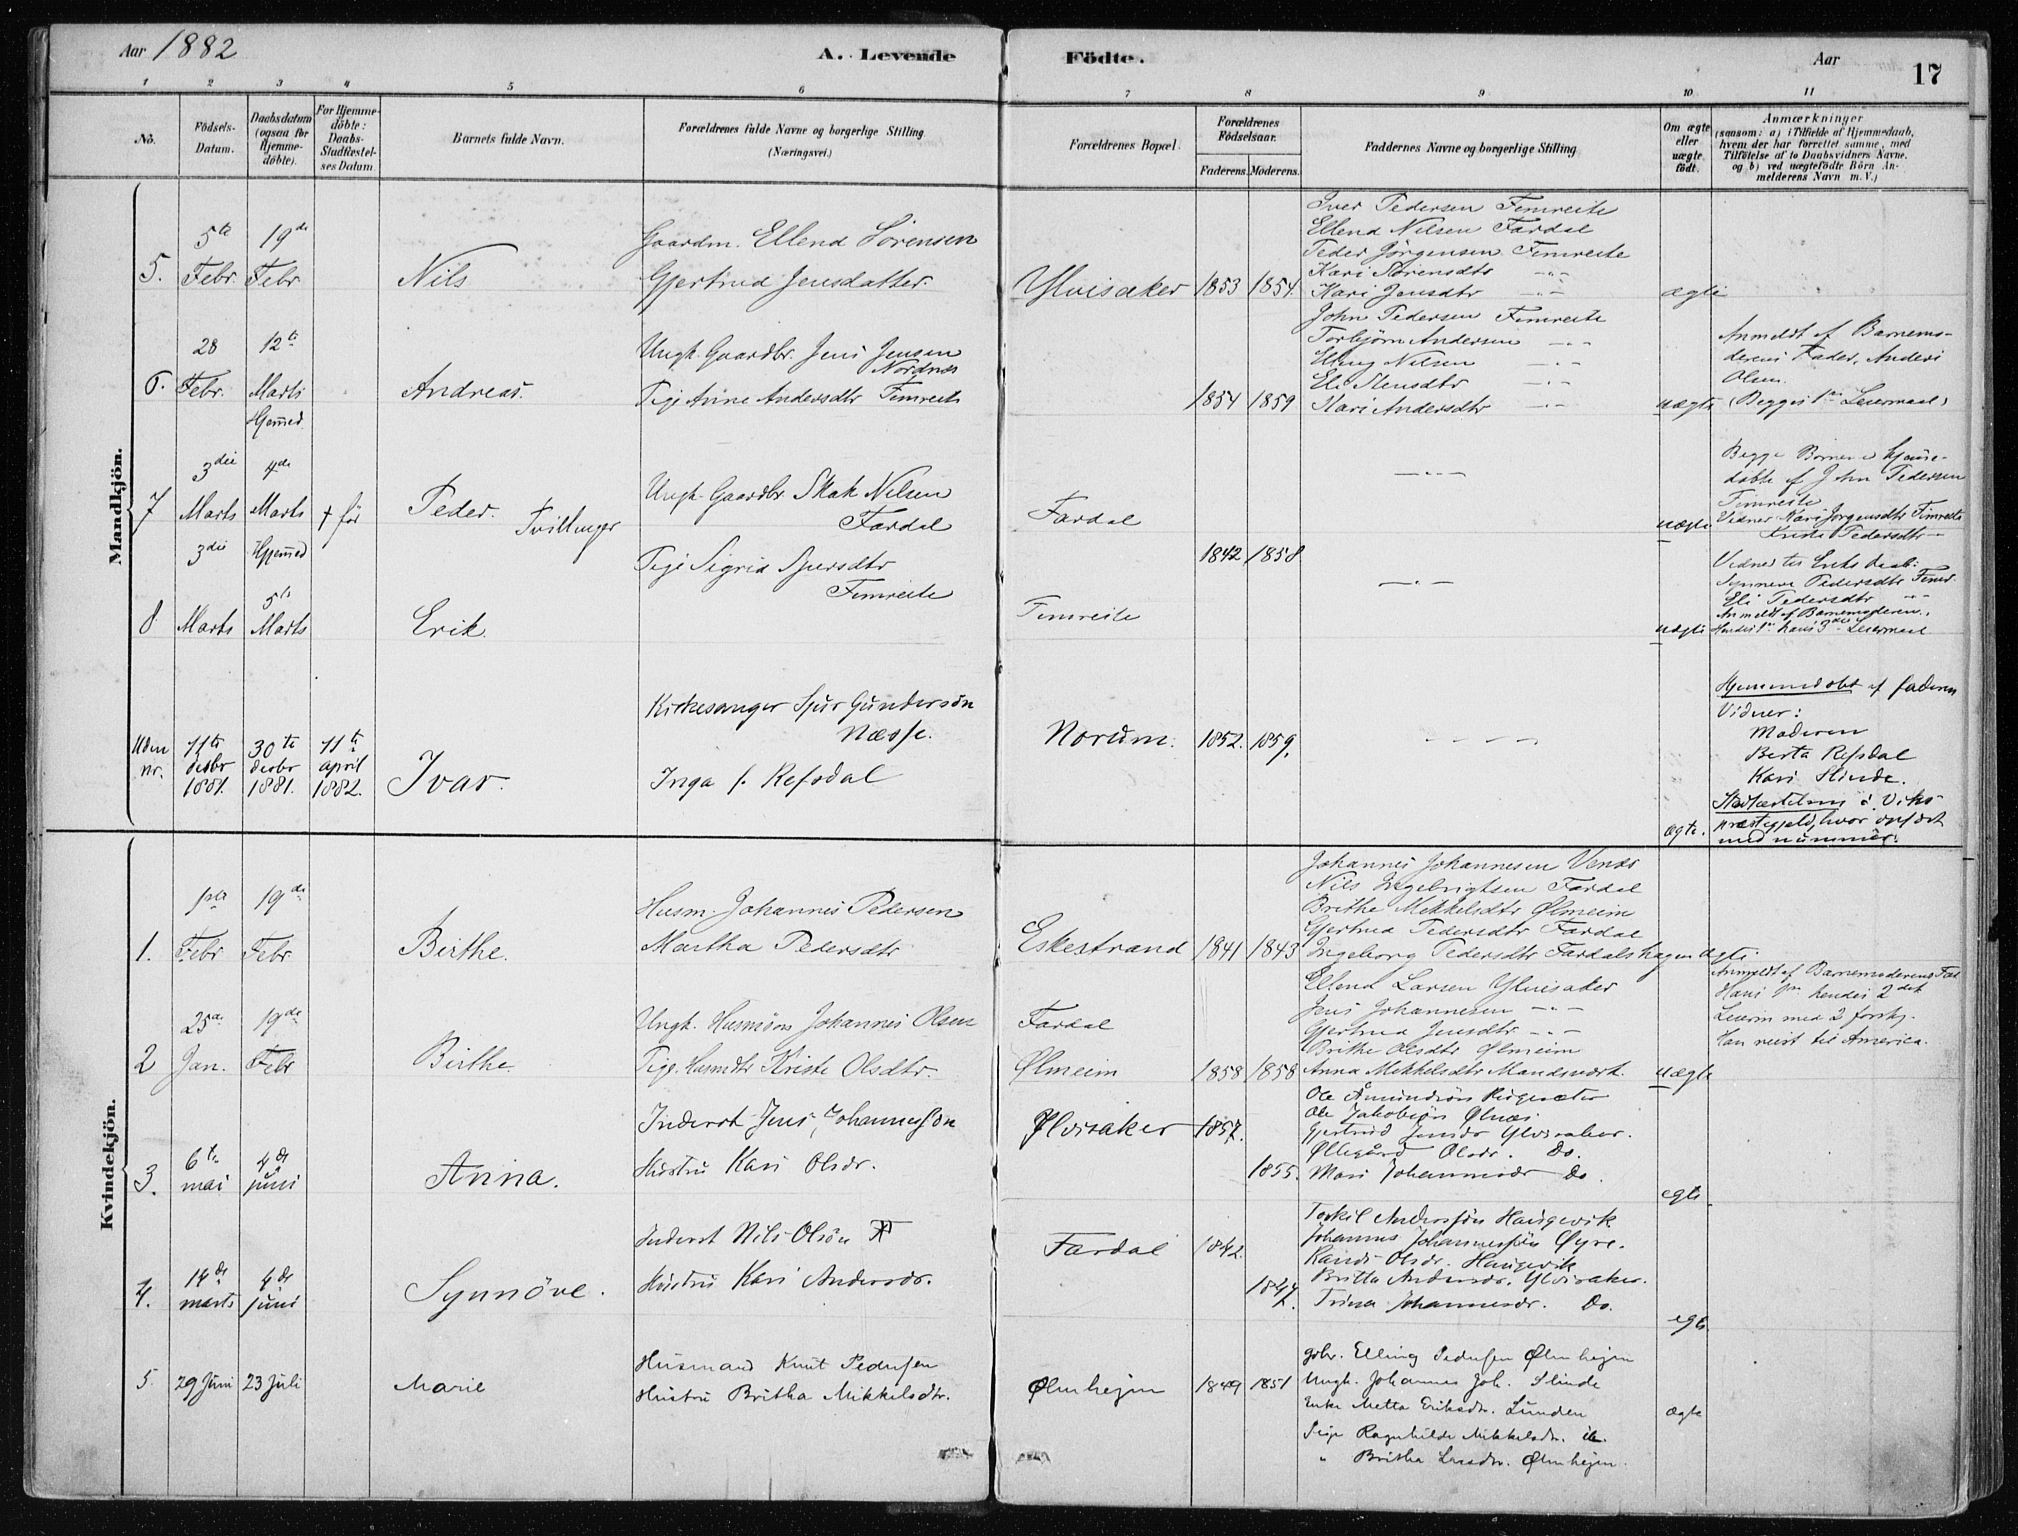 Aar 1882
A. Levende Födte.
Aar
17
1 2 3 4 5 6 7 8 9 10 11
No.
Födsels-Datum.
Daabsdatum (ogsaa for Hjemme-döbte).
For Hjemme-döbte: Daabs-Stadfæstel-ses Datum
Barnets fulde Navn.
Forældrenes fulde Navne og borgerlige Stilling (Næringsvei.)
Forældrenes Bopæl.
Forældrenes Födselsaar.
Faderens. Moderens.
Faddernes Navne og borgerlige Stilling
Om ægte eller uægte födt.
Anmærkninger
(saasom: a) i Tilfælde af Hjemmedaab,
hvem der har forrettet samme, med
Tilföielse af to Daabsvidners Navne.
og b) ved uægtefödte Börn An-
melderens Navn m. V.)
Mandkjön.
5. 5te Febr. 19de Febr.
Nils
Gaardm. Ellend Sörensen
Gjertrud Jensdatter.
Ylvisaker 1853 1854
Iver Pedersen Fimreite
Ellend Nilsen Fardal
Peder Jörgensen Fimreite
Kari Sörensdtr -"-
Kari Jensdtr -"-
ægte
6. 28 Febr. 12te Marts
Andreas.
Ungk. Gaardbr. Jens Jensen
Nordnæs
Pige Anne Andersdtr Fimreite
1854 1859
John Pedersen Fimreite
Torbjörn Andersen -"-
Elling Nilsen -"-
Eli Stensdtr -"-
Kari Andersdtr -"-
uægte
Anmeldt af Barnemo-
derens Fader, Anders
Olsen.
(Begges 1ste Leiermaal)
7 3die Marts Hjemmed 4de Marts † för
Peder. Tvillinger
Ungk. Gaardbr Skak Nilsen
Fardal
Fardal
-"-
uægte
Begge Börnene hjemme-
döbte af John Pedersen
Fimreite
Vidner Kari Jörgensdtr Fimreite
Kristi Pedersdtr -
8 3die Marts Hjemmed 5te Marts
Erik.
Pige Sigrid Sjursdtr
Fimreite
Fimreite
1842 1858
-"-
uægte
Vidner til Eriks Daab:
Synneve Pedersdtr Fimr.
Eli Pedersdtr -"-
Anmeldt af Barnemoderen.
Hendes 1ste hans 3die Leiermaal
Uden nr. 11te desbr 1881. 30te desbr 1881. 11te april 1882.
Ivar.
Kirkesanger Sjur Gundersön
Næsse.
Inga f. Refsdal
Norum. 1852. 1859.
ægte.
Hjemmedöbt af faderen
Vidner:
Moderen
Berta Refsdal
Kari Slinde.
Stadfæstelsen i Viks
præstegjeld, hvor opfört
med nummer.
Kvindekjön.
1. 1ste Febr 19de Febr.
Birthe.
Husm. Johannes Pedersen
Martha Pedersdtr
Eskestrand 1841 1843
Johannes Johannesen Venæs
Nils Ingebrigtsen Fardal
Brithe Mikkelsdtr Ølmeim
Gjertrud Pedersdtr Fardal
Ingeborg Pedersdtr Fardalshagen
ægte.
2 25de Jan. 19de Febr
Birthe.
Ungk. Husmsöns Johannes Olsen
Pige. Husmdtr Kristi Olsdtr.
Fardal
Ølmeim 1858 1858
Ellend Larsen Ylvisaker
Jens Johannesen -"-
Gjertrud Jensdtr -"-
Brithe Olsdtr Ølmeim
Anna Mikkelsdtr
uægte
Anmeldt af Barnemoderens Fad
Hans 1ste hendes 2det
Leierm med 2 forskj.
Han reist til America.
3. 6te mai 4de juni
Anna.
Inderst Jens Johannessön
Hustru Kari Olsdr.
Ylvisaker 1857. 1855.
Ole Åmundsön
Ole Jakobsön Ølnæs.
Gjertrud Jensdr Ylvisaker.
Øllegård Olsdr. Do.
Mari Johannesdr Do.
egte.
4. 14de marts 4de juni
Synnöve.
Inderst Nils Olsön
Hustru Kari Andersdr.
Fardal 1842. 1847.
Torkil Anderssön Haugevik
Johannes Johannessön Øyre.
Randi Olsdr. Haugevik
Britta Andersdr. Ylvisaker.
Trina Johannesdr. Do.
egte
5. 29 Juni 23 Juli
Marie
Husmand Knut Pedersen
Hustru Britha Mikkelsdtr.
Ølmheim 1849 1851
Gbr. Elling Pedersen Ølmheim
Ungk. Johannes Joh. Slinde
Enke Metta Eriksdr. Lunden
Pige Ragnhilde Mikkelsdr. ib.
" Britha Larsdtr. Ølmheim.
ægte